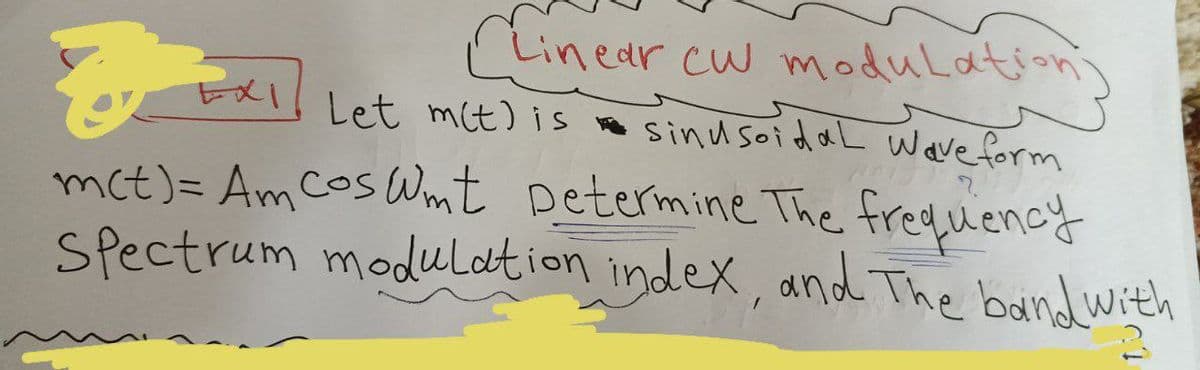 Linear CW modulation
Ex1 Let m(t) is sinusoidal waveform
m(t)= Am cos Wmt Determine The frequency
Spectrum modulation index, and The bandwith